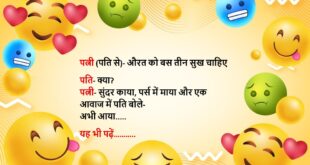 पत्नी (पति से)- औरत को बस तीन सुख चाहिए
पति- क्या?
पत्नी- सुंदर काया, पर्स में माया और एक
आवाज में पति बोले-
अभी आया.....
यह भी पढ़ें...........